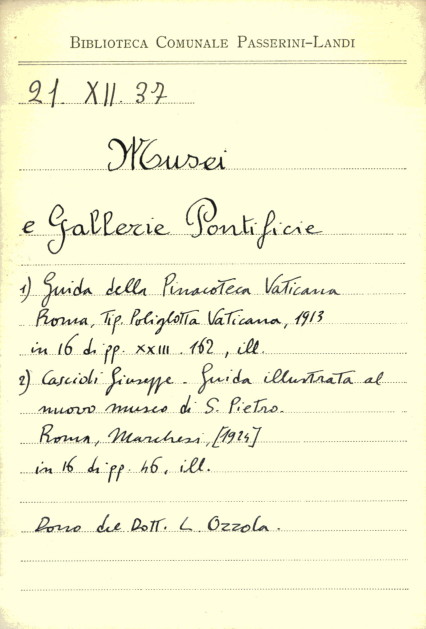 BIBLIOTECA COMUNALE PASSERINI-LANDI
21. XII. 37
Musei
e Gallerie Pontificie
1) Guida della Pinacoteca Vaticana
Roma, Tip. Poliglotta Vaticana, 1913
in 16 di pp. XXIII. 162, ill.
2) Cascioli Giuseppe - Guida illustrata al
nuovo museo di S. Pietro.
Roma, Marchesi, [1924]
in 16 di pp. 46, ill.
Dono del Dott. L. Ozzola.